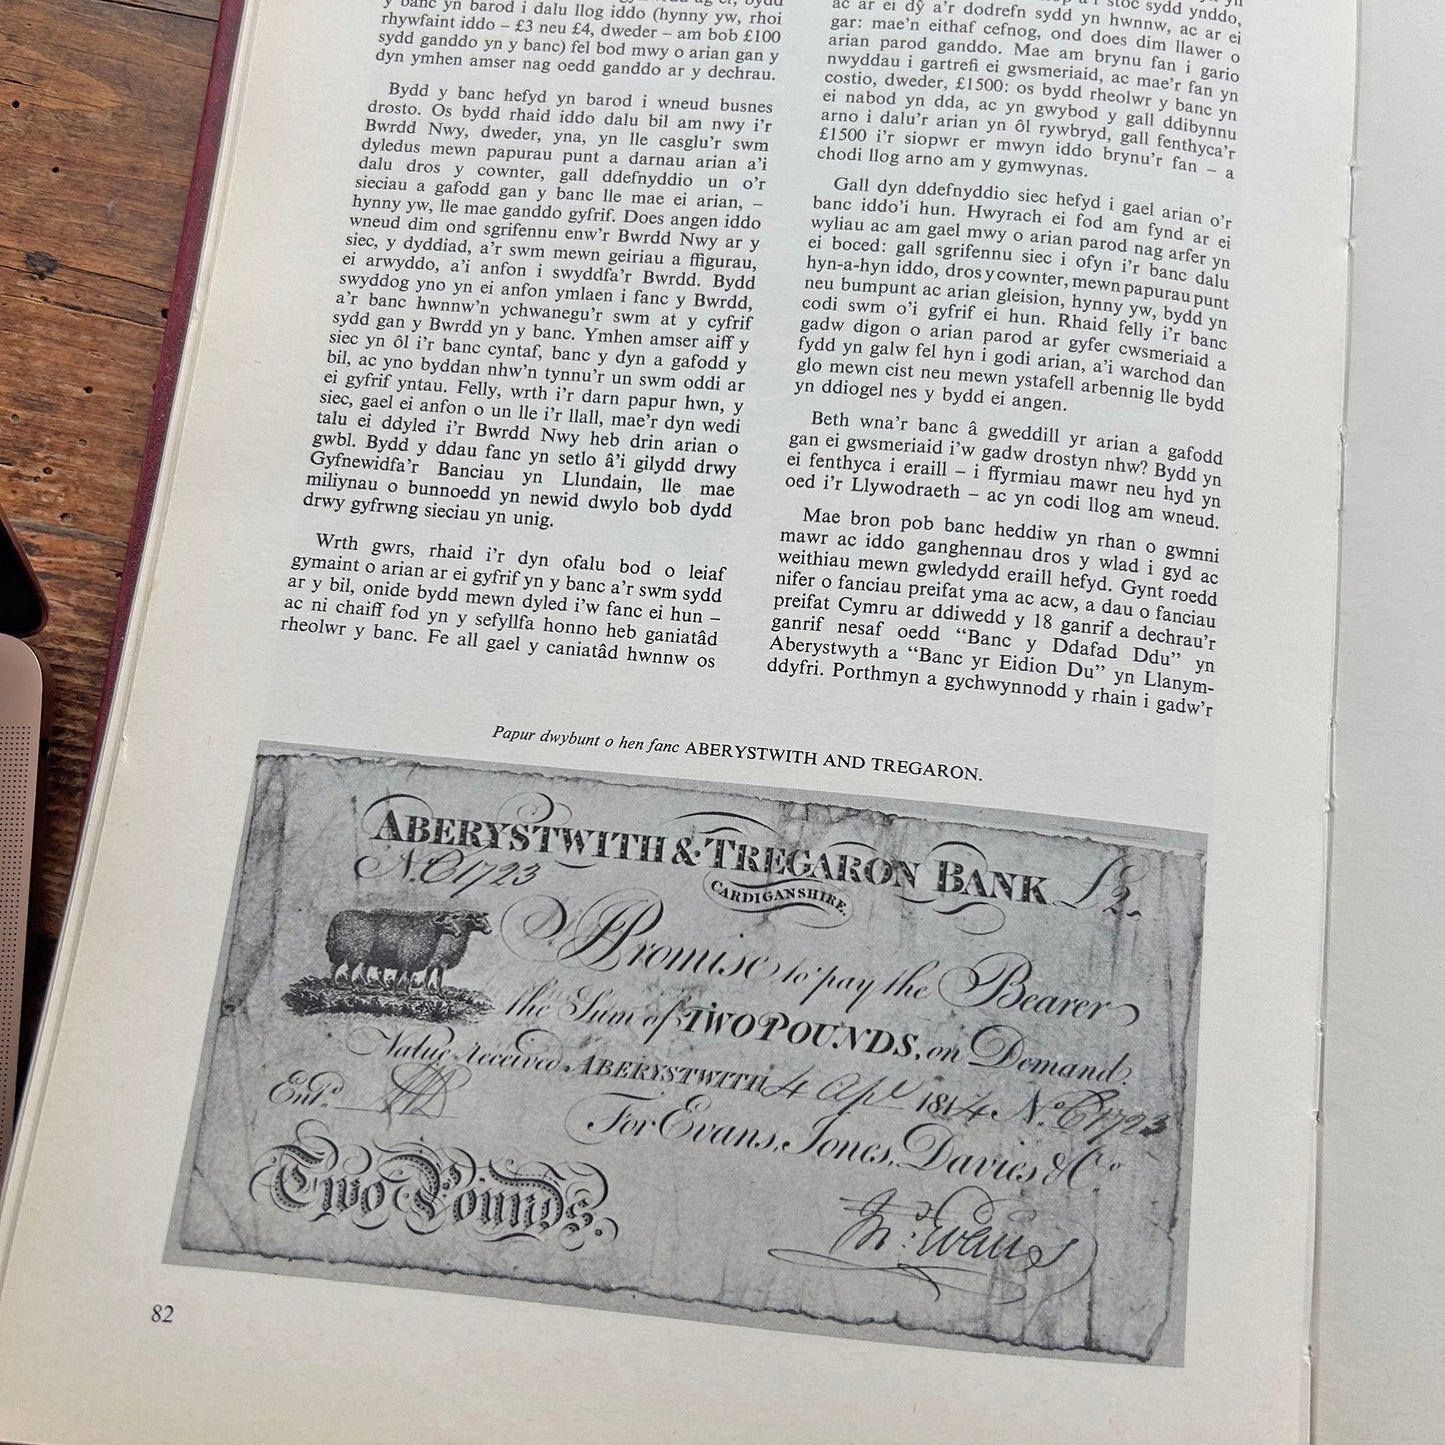 y banc yn barod i dalu llog iddo (hynny yw, rhoi
rhywfaint iddo – £3 neu £4, dweder – am bob £100
sydd ganddo yn y banc) fel bod mwy o arian gan y
dyn ymhen amser nag oedd ganddo ar y dechrau.
Bydd y banc hefyd yn barod i wneud busnes
drosto. Os bydd rhaid iddo dalu bil am nwy i'r
Bwrdd Nwy, dweder, yna, yn lle casglu'r swm
dyledus mewn papurau punt a darnau arian a'i
dalu dros y cownter, gall ddefnyddio un o'r
sieciau a gafodd gan y banc lle mae ei arian, –
hynny yw, lle mae ganddo gyfrif. Does angen iddo
wneud dim ond sgrifennu enw'r Bwrdd Nwy ar y
siec, y dyddiad, a'r swm mewn geiriau a ffigurau,
ei arwyddo, a'i anfon i swyddfa'r Bwrdd. Bydd
swyddog yno yn ei anfon ymlaen i fanc y Bwrdd,
a'r banc hwnnw'n ychwanegu'r swm at y cyfrif
sydd gan y Bwrdd yn y banc. Ymhen amser aiff y
siec yn ôl i'r banc cyntaf, banc y dyn a gafodd y
bil, ac yno byddan nhw'n tynnu'r un swm oddi ar
ei gyfrif yntau. Felly, wrth i'r darn papur hwn, y
siec, gael ei anfon o un lle i'r llall, mae'r dyn wedi
talu ei ddyled i'r Bwrdd Nwy heb drin arian o
gwbl. Bydd y ddau fanc yn setlo â'i gilydd drwy
Gyfnewidfa'r Banciau yn Llundain, lle mae
miliynau o bunnoedd yn newid dwylo bob dydd
drwy gyfrwng sieciau yn unig.
Wrth gwrs, rhaid i'r dyn ofalu bod o leiaf
gymaint o arian ar ei gyfrif yn y banc a'r swm sydd
ar y bil, onide bydd mewn dyled i'w fanc ei hun –
ac ni chaiff fod yn y sefyllfa honno heb ganiatâd
rheolwr y banc. Fe all gael y caniatâd hwnnw os
stoc sydd ynddo,
ac ar ei dŷ a'r dodrefn sydd yn hwnnw, ac ar ei
gar: mae'n eithaf cefnog, ond does dim llawer o
arian parod ganddo. Mae am brynu fan i gario
nwyddau i gartrefi ei gwsmeriaid, ac mae'r fan yn
costio, dweder, £1500: os bydd rheolwr y banc yn
ei nabod yn dda, ac yn gwybod y gall ddibynnu
arno i dalu'r arian yn ôl rywbryd, gall fenthyca'r
£1500 i'r siopwr er mwyn iddo brynu'r fan – a
chodi llog arno am y gymwynas.
Gall dyn ddefnyddio siec hefyd i gael arian o'r
banc iddo'i hun. Hwyrach ei fod am fynd ar ei
wyliau ac am gael mwy o arian parod nag arfer yn
ei boced: gall sgrifennu siec i ofyn i'r banc dalu
hyn-a-hyn iddo, dros y cownter, mewn papurau punt
neu bumpunt ac arian gleision, hynny yw, bydd yn
codi swm o'i gyfrif ei hun. Rhaid felly i'r banc
gadw digon o arian parod ar gyfer cwsmeriaid a
fydd yn galw fel hyn i godi arian, a'i warchod dan
glo mewn cist neu mewn ystafell arbennig lle bydd
yn ddiogel nes y bydd ei angen.
Beth wna'r banc â gweddill yr arian a gafodd
gan ei gwsmeriaid i'w gadw drostyn nhw? Bydd yn
ei fenthyca i eraill – i ffyrmiau mawr neu hyd yn
oed i'r Llywodraeth – ac yn codi llog am wneud.
Mae bron pob banc heddiw yn rhan o gwmni
mawr ac iddo ganghennau dros y wlad i gyd ac
weithiau mewn gwledydd eraill hefyd. Gynt roedd
nifer o fanciau preifat yma ac acw, a dau o fanciau
preifat Cymru ar ddiwedd y 18 ganrif a dechrau'r
ganrif nesaf oedd “Banc y Ddafad Ddu” yn
Aberystwyth a “Banc yr Eidion Du” yn Llanym-
ddyfri. Porthmyn a gychwynnodd y rhain i gadw'r
Papur dwybunt o hen fanc ABERYSTWITH AND TREGARON.
ABERYSTWITH & TREGARON BANK £2.
No. C1723
CARDIGANSHIRE.
I Promise to pay the Bearer
the Sum of TWO POUNDS, on Demand.
Value received ABERYSTWITH 4 Apl 1814 No. C1723
Entd.
For Evans, Jones, Davies & Co.
Two Pounds.
Jn. Evans
82